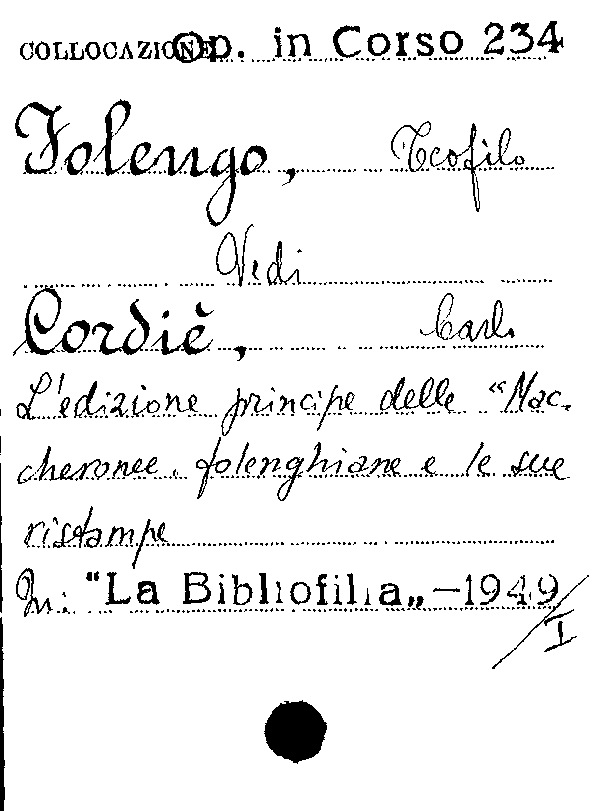 COLLOCAZIONE Op. in Corso 234
Folengo, Teofilo
Vedi
Cordiè, Carlo
L'edizione principe delle "Mac-
cheronee" folenghiane e le sue
ristampe
In: "La Bibliofilia„ - 1949/I